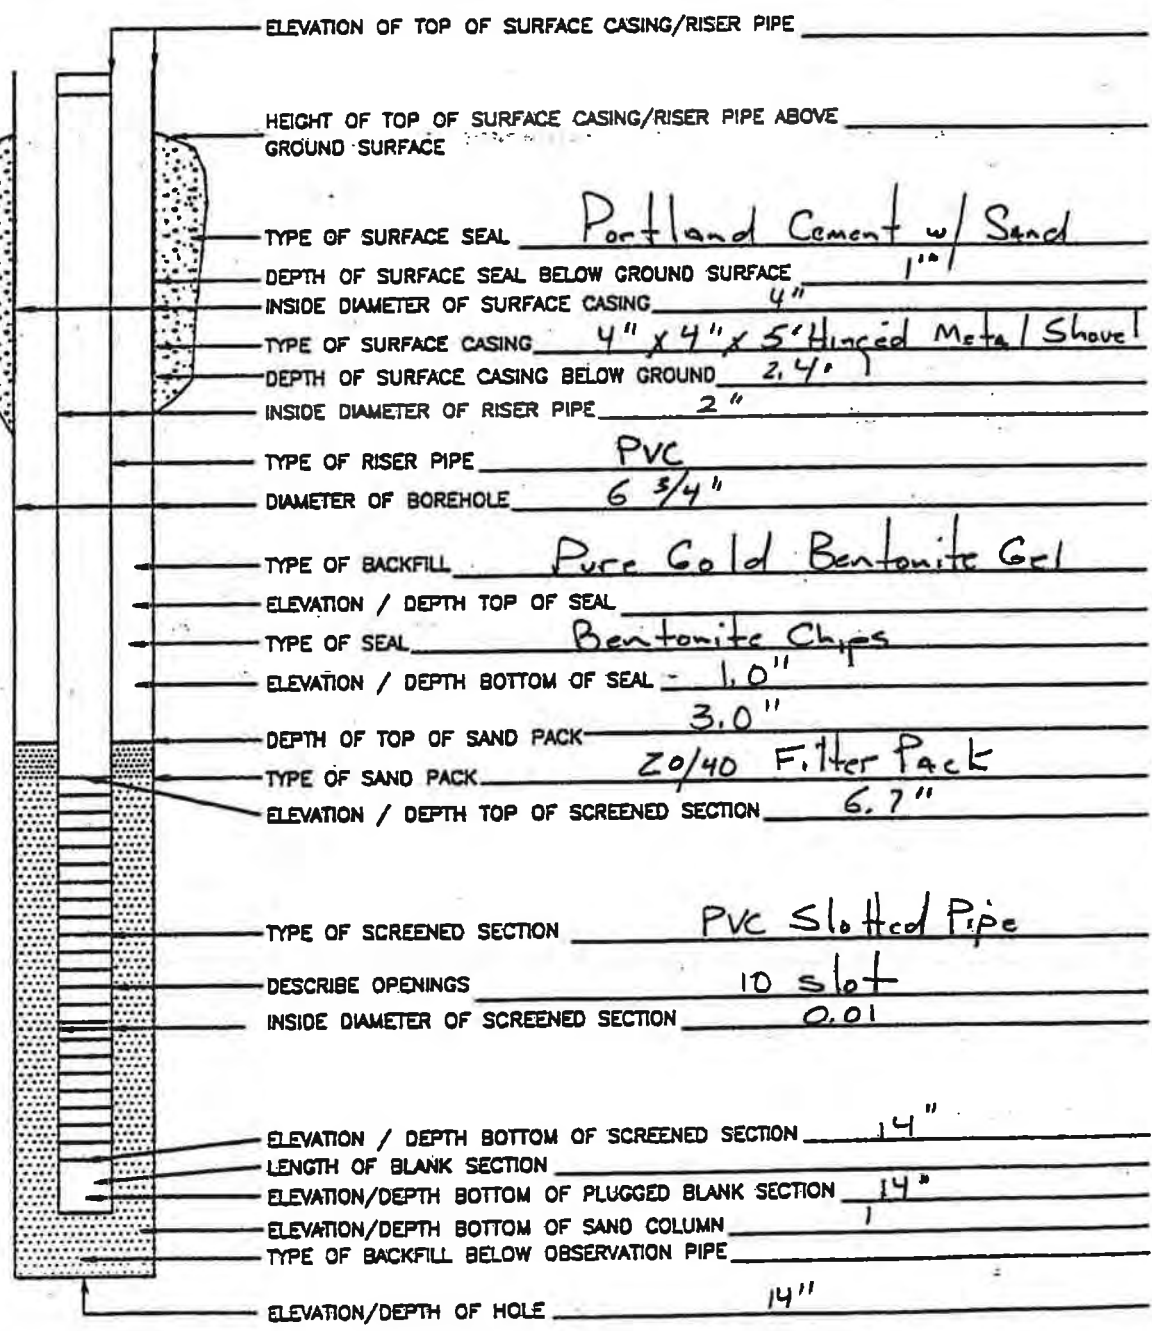 ELEVATION OF TOP OF SURFACE CASING/RISER PIPE
HEIGHT OF TOP OF SURFACE CASING/RISER PIPE ABOVE
GROUND SURFACE
TYPE OF SURFACE SEAL Portland Cement w/ Sand
DEPTH OF SURFACE SEAL BELOW GROUND SURFACE 1"
INSIDE DIAMETER OF SURFACE CASING 4"
TYPE OF SURFACE CASING 4" x 4" x 5' Hinged Metal Shovel
DEPTH OF SURFACE CASING BELOW GROUND 2.4"
INSIDE DIAMETER OF RISER PIPE 2"
TYPE OF RISER PIPE PVC
DIAMETER OF BOREHOLE 6 3/4"
TYPE OF BACKFILL Pure Gold Bentonite Gel
ELEVATION / DEPTH TOP OF SEAL
TYPE OF SEAL Bentonite Chips
ELEVATION / DEPTH BOTTOM OF SEAL 1.0"
DEPTH OF TOP OF SAND PACK 3.0"
TYPE OF SAND PACK 20/40 Filter Pack
ELEVATION / DEPTH TOP OF SCREENED SECTION 6.7"
TYPE OF SCREENED SECTION PVC Slotted Pipe
DESCRIBE OPENINGS 10 slot
INSIDE DIAMETER OF SCREENED SECTION 0.01
ELEVATION / DEPTH BOTTOM OF SCREENED SECTION 14"
LENGTH OF BLANK SECTION
ELEVATION/DEPTH BOTTOM OF PLUGGED BLANK SECTION 14"
ELEVATION/DEPTH BOTTOM OF SAND COLUMN
TYPE OF BACKFILL BELOW OBSERVATION PIPE
ELEVATION/DEPTH OF HOLE 14"